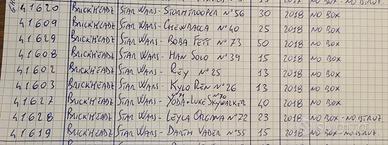 41620 BRICKHEADZ STAR WARS - STORMTROOPER N°56 30 2018 NO BOX
41609 BRICKHEADZ STAR WARS - CHEWBACCA N°40 25 2018 NO BOX
41629 BRICKHEADZ STAR WARS - BOBA FETT N°73 50 2018 NO BOX
41608 BRICKHEADZ STAR WARS - HAN SOLO N°39 15 2018 NO BOX
41602 BRICKHEADZ STAR WARS - REY N°25 13 2018 NO BOX
41603 BRICKHEADZ STAR WARS - KYLO REN N°26 13 2018 NO BOX
41627 BRICKHEADZ STAR WARS - YODA - LUKE SKYWALKER 40 2018 NO BOX
41628 BRICKHEADZ STAR WARS - LEYLA ORGANA N°72 23 2018 NO BOX - NO ISTRUZ
41619 BRICKHEADZ STAR WARS - DARTH VADER N°55 15 2018 NO BOX - NO ISTRUZ